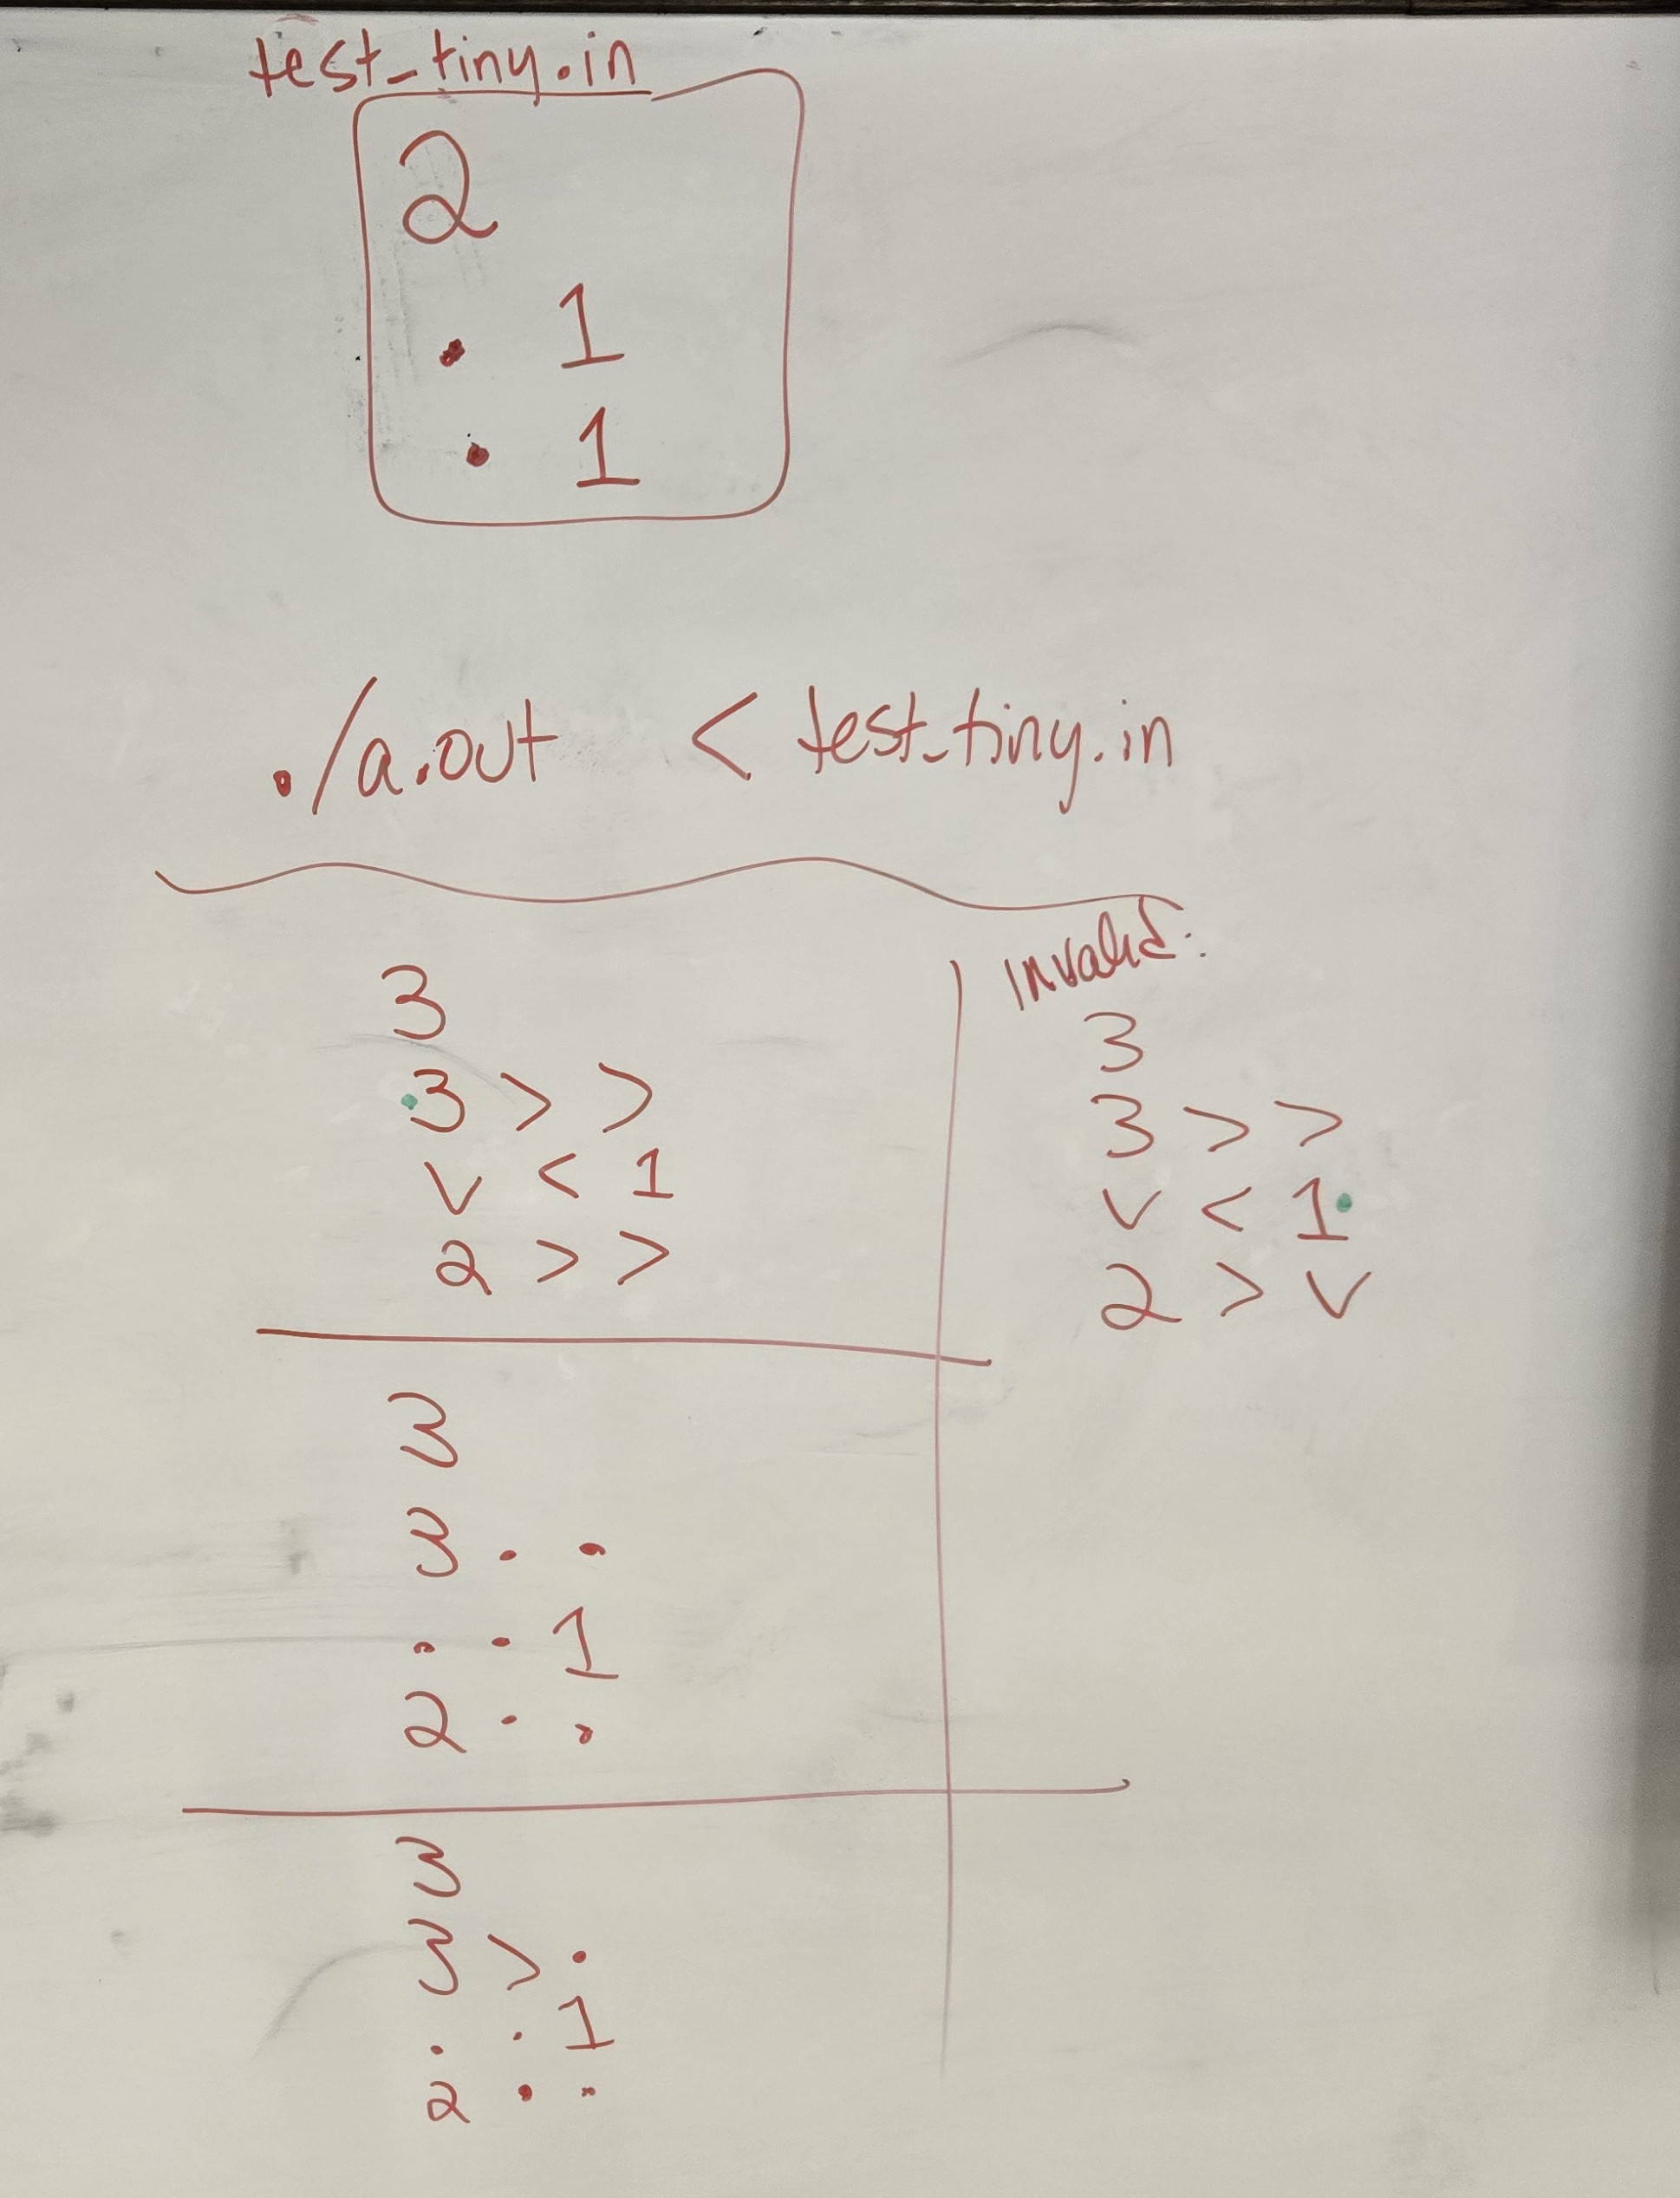 test_tiny.in
2
. 1
. 1
./a.out < test_tiny.in
3
3 > >
v < 1
2 > >
Invalid:
3
3 > >
v < 1
2 > v
3
3 . .
. . 1
2 . .
3
3 > .
. . 1
2 . .